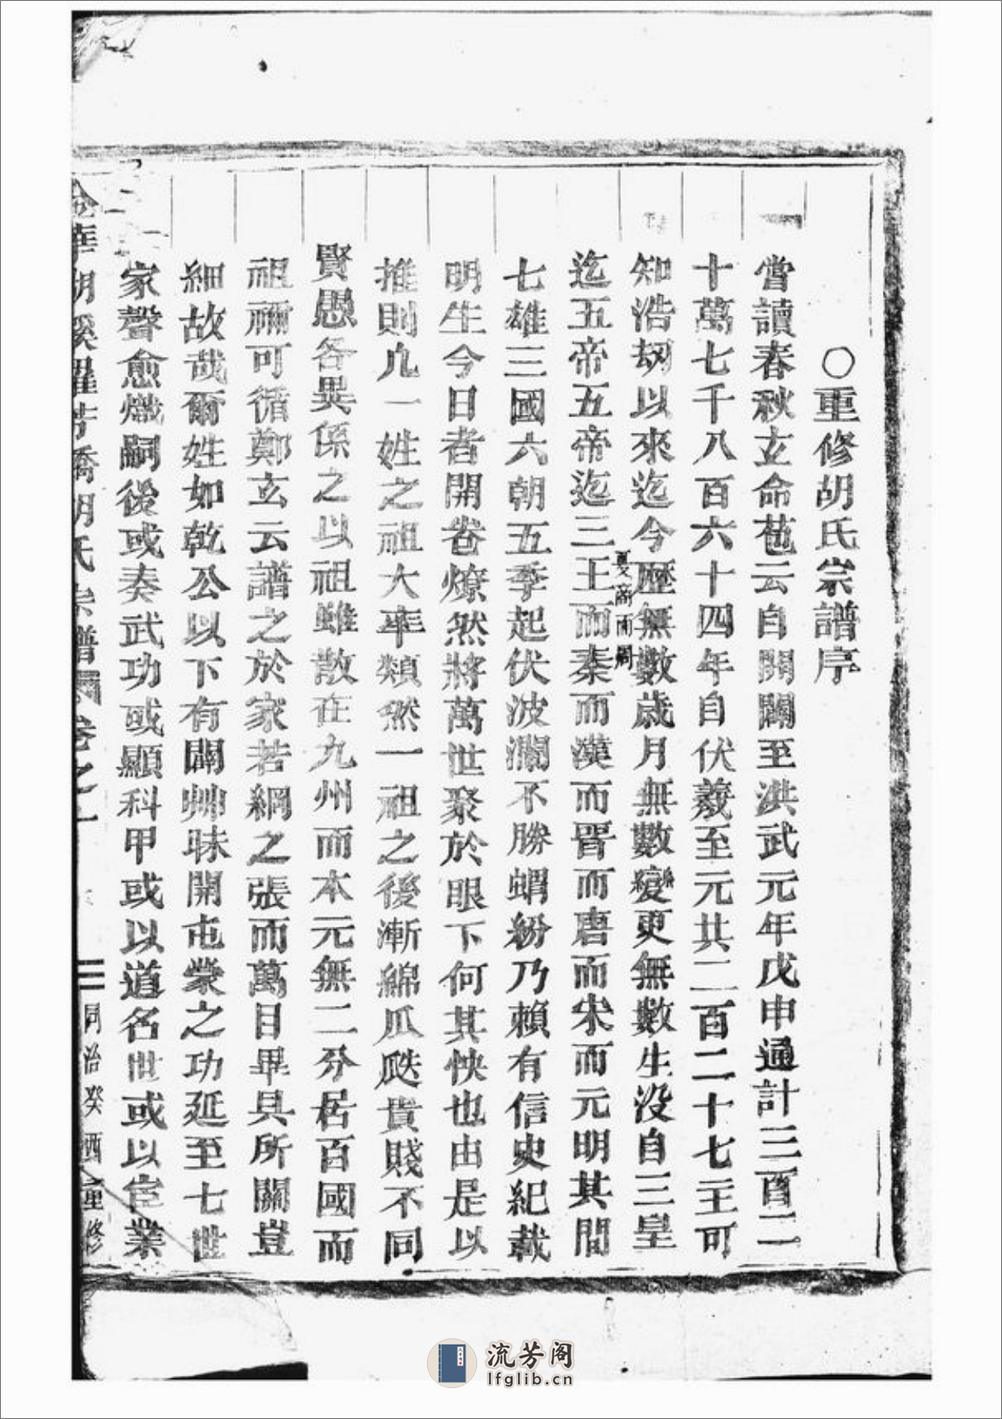 〇重修胡氏宗譜序
嘗讀春秋玄命苞云自開闢至洪武元年戊申通計三百二
十萬七千八百六十四年自伏羲至元共二百二十七主可
知浩刼以來迄今歷無數歲月無數變更無數生没自三皇
迄五帝五帝迄三王夏商而周而秦而漢而晉而唐而宋而元明其間
七雄三國六朝五季起伏波瀾不勝蝟紛乃賴有信史紀載
明生今日者開卷燎然將萬世聚於眼下何其快也由是以
推則凢一姓之祖大率類然一祖之後漸綿瓜瓞貴賤不同
賢愚各異係之以祖雖散在九州而本元無二分居百國而
祖禰可循鄭玄云譜之於家若綱之張而萬目畢具所關豈
細故哉爾姓如乾公以下有闢艸昧開屯蒙之功延至七世
家聲愈熾嗣後或奏武功或顯科甲或以道名世或以宦業
金華胡溪 芳橋胡氏宗譜 卷之一
同治癸酉重修
流芳阁
lfglib.cn